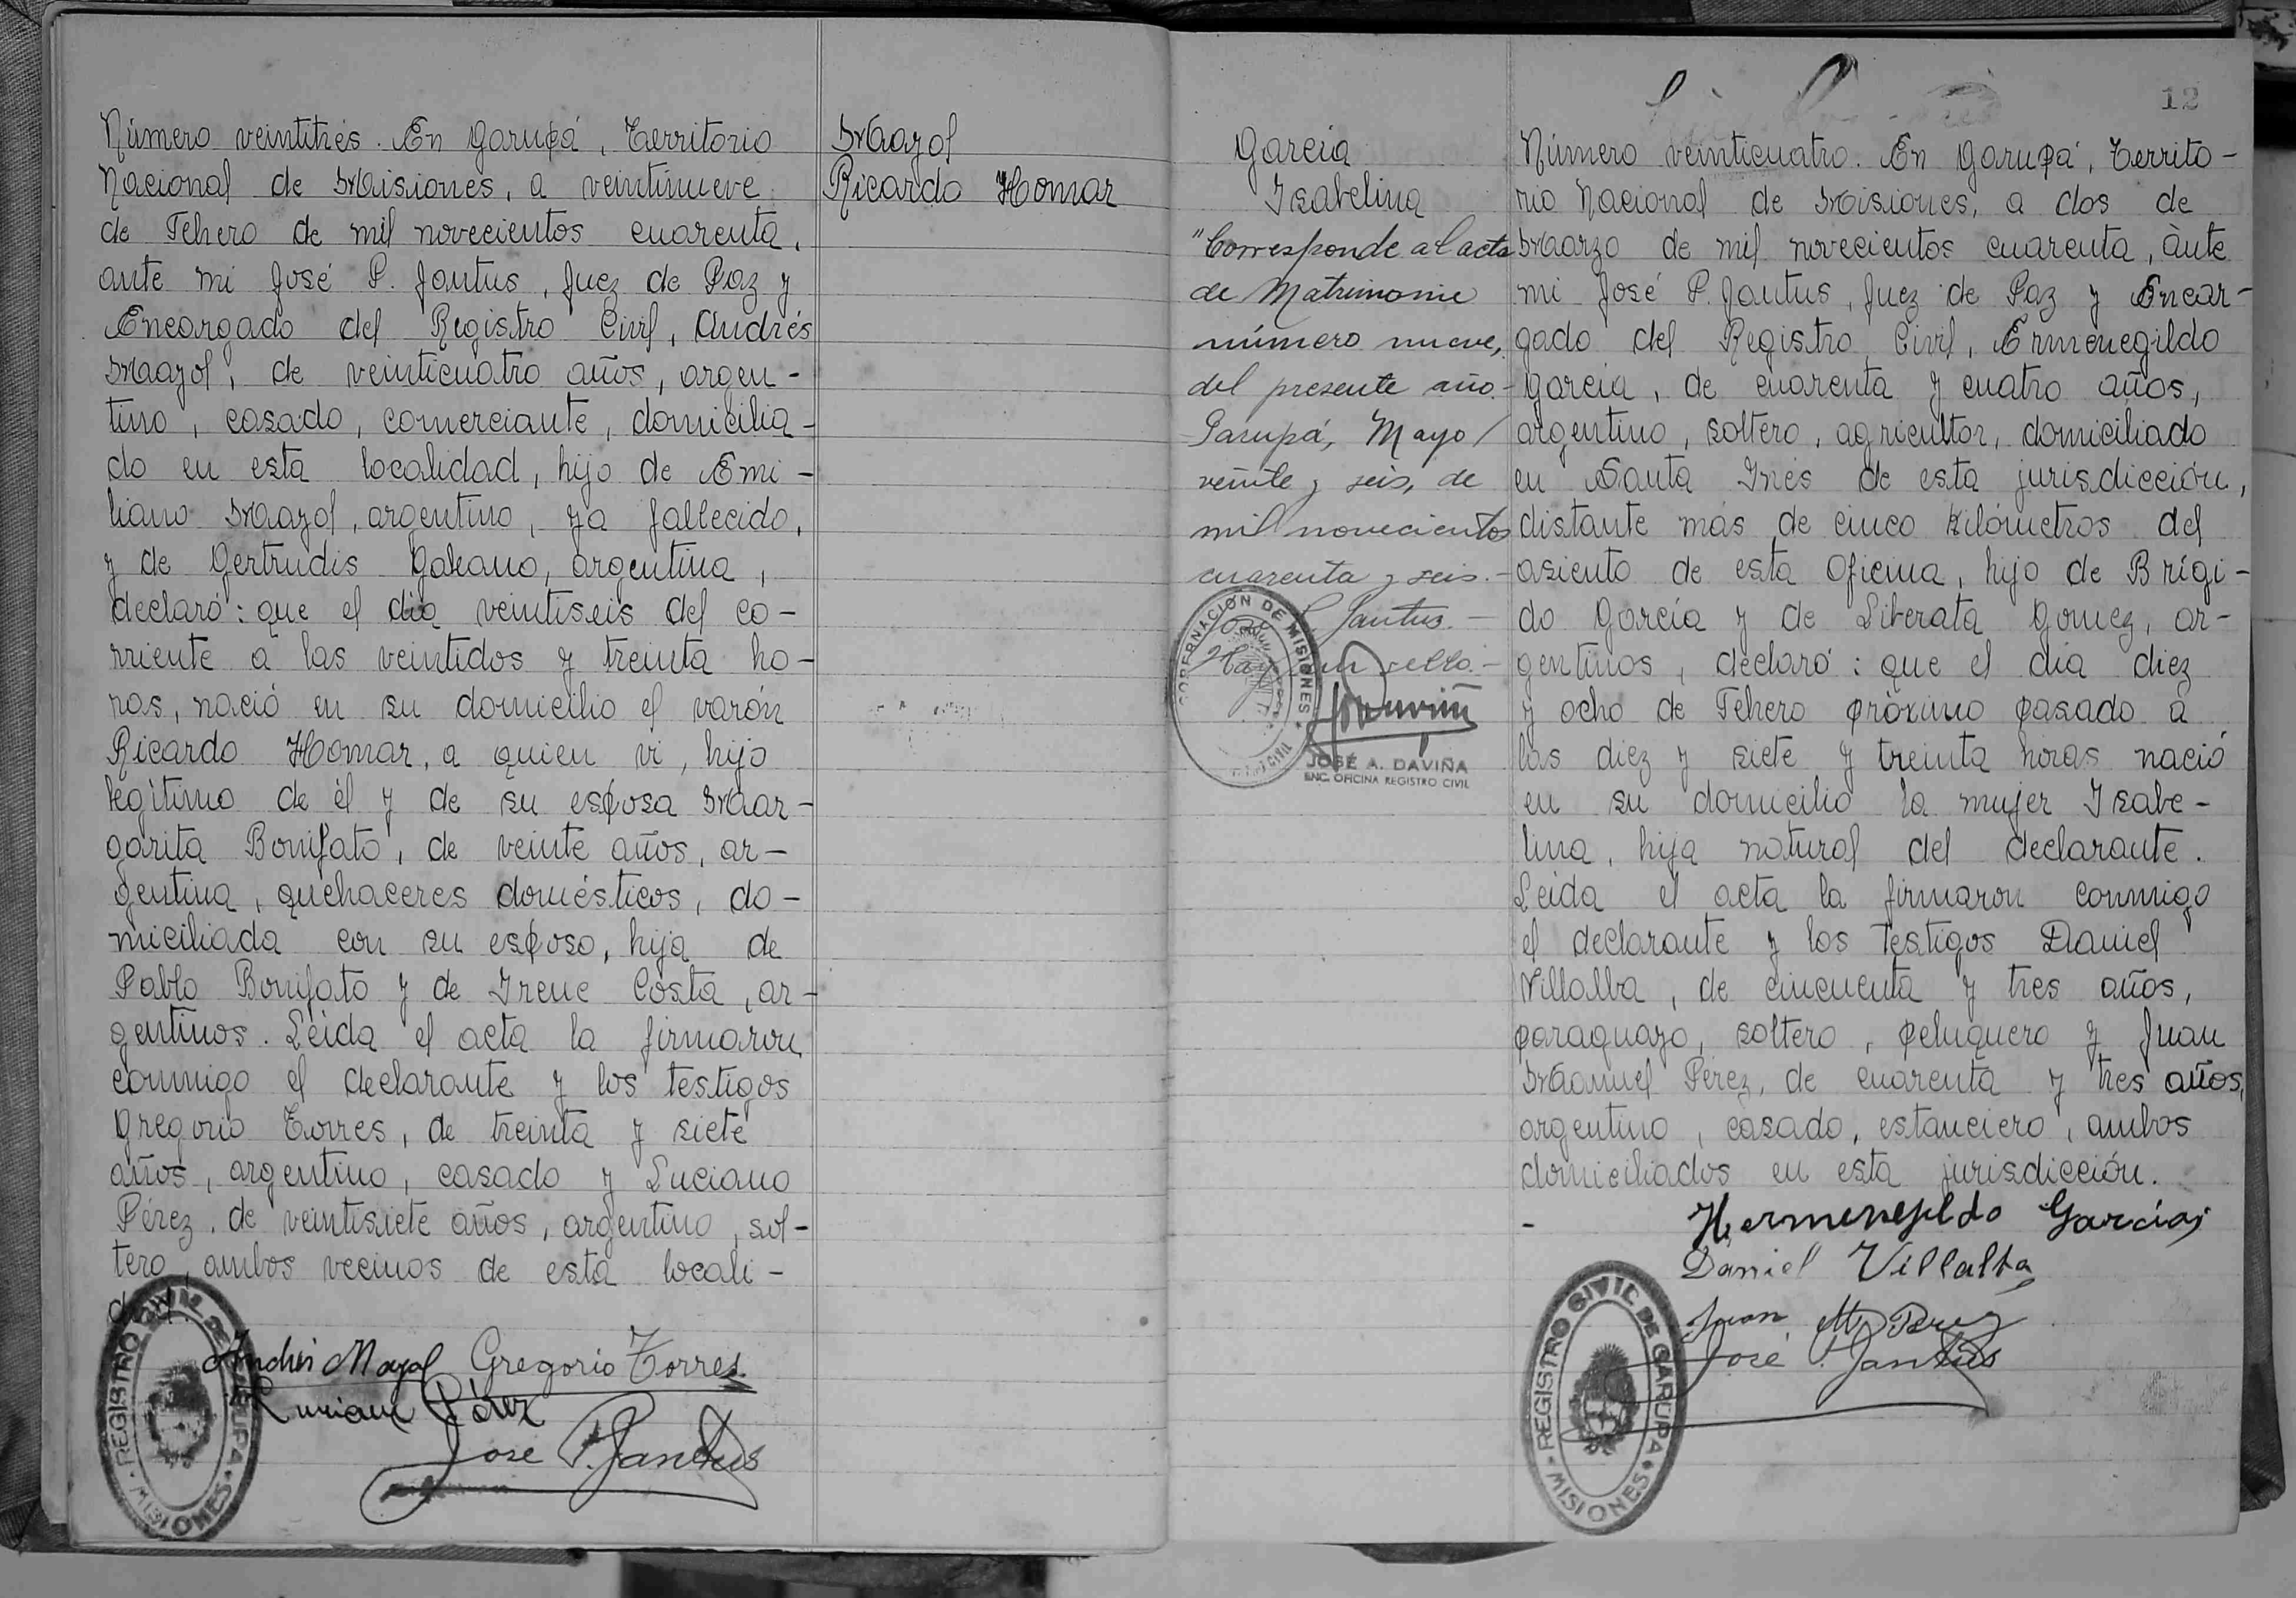 Número veintitrés. En Garupá, Territorio
Nacional de Misiones, a veintinueve
de Febrero de mil novecientos cuarenta,
ante mi José P. Jantus, Juez de Paz y
Encargado del Registro Civil, Andrés
Mayol, de veinticuatro años, argen-
tino, casado, comerciante, domicilia-
do en esta localidad, hijo de Emi-
liano Mayol, argentino, ya fallecido,
y de Gertrudis Galeano, argentina,
declaró: que el día veintiseis del co-
rriente a las veintidos y treinta ho-
ras, nació en su domicilio el varón
Ricardo Homar, a quien vi, hijo
legítimo de él y de su esposa Mar-
garita Bonifato, de veinte años, ar-
gentina, quehaceres domésticos, do-
miciliada con su esposo, hija de
Pablo Bonifato y de Irene Costa, ar-
gentinos. Leida el acta la firmaron
conmigo el declarante y los testigos
Gregorio Torres, de treinta y siete
años, argentino, casado y Luciano
Pérez, de veintisiete años, argentino, sol-
tero, ambos vecinos de esta locali-
dad.
Andrés Mayol Gregorio Torres
Luciano Pérez
José P. Jantus
REGISTRO CIVIL DE GARUPA
MISIONES
Mayol
Ricardo Homar
Garcia
Isabelina
"Corresponde al acta
de Matrimonio
número nueve,
del presente año.-
Garupá, Mayo/
veinte y seis, de
mil novecientos
cuarenta y seis.-
Jantus.-
Hay un sello.-
GOBERNACIÓN DE MISIONES
JOSÉ A. DAVIÑA
ENC. OFICINA REGISTRO CIVIL
12
Número veinticuatro. En Garupá, Territo-
rio Nacional de Misiones, a dos de
Marzo de mil novecientos cuarenta, ante
mi José P. Jantus, Juez de Paz y Encar-
gado del Registro Civil, Ermenegildo
Garcia, de cuarenta y cuatro años,
argentino, soltero, agricultor, domiciliado
en Santa Inés de esta jurisdicción,
distante más de cinco kilómetros del
asiento de esta Oficina, hijo de Brígi-
do García y de Liberata Gomez, ar-
gentinos, declaró: que el día diez
y ocho de Febrero próximo pasado a
las diez y siete y treinta horas nació
en su domicilio la mujer Isabe-
lina, hija natural del declarante.
Leida el acta la firmaron conmigo
el declarante y los testigos Daniel
Villalba, de cincuenta y tres años,
paraguayo, soltero, peluquero y Juan
Manuel Pérez, de cuarenta y tres años,
argentino, casado, estanciero, ambos
domiciliados en esta jurisdicción.
Hermenegildo Garcia
Daniel Villalba
Juan M. Perez
José P. Jantus
REGISTRO CIVIL DE GARUPA
MISIONES